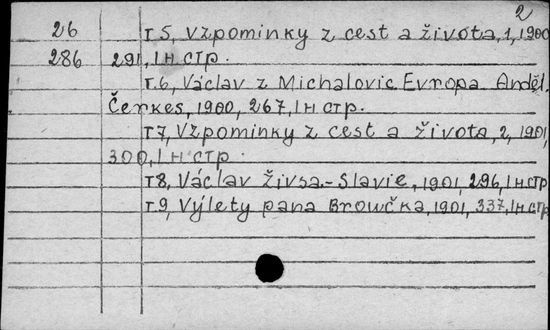 2
26 т.5, Vzpomínky z cest a života, 1, 1900
286 291, 1 н стр.
т.6, Václav z Michalovic Evropa. Anděl.
Čerkes, 1900, 267, 1 н стр.
т7, Vzpomínky z cest a života, 2, 1901,
300, 1 н стр.
т8, Václav Živsa.-Slavie, 1901, 296, 1 н стр
т.9, Výlety pana Browčka, 1901, 337, 1 н стр